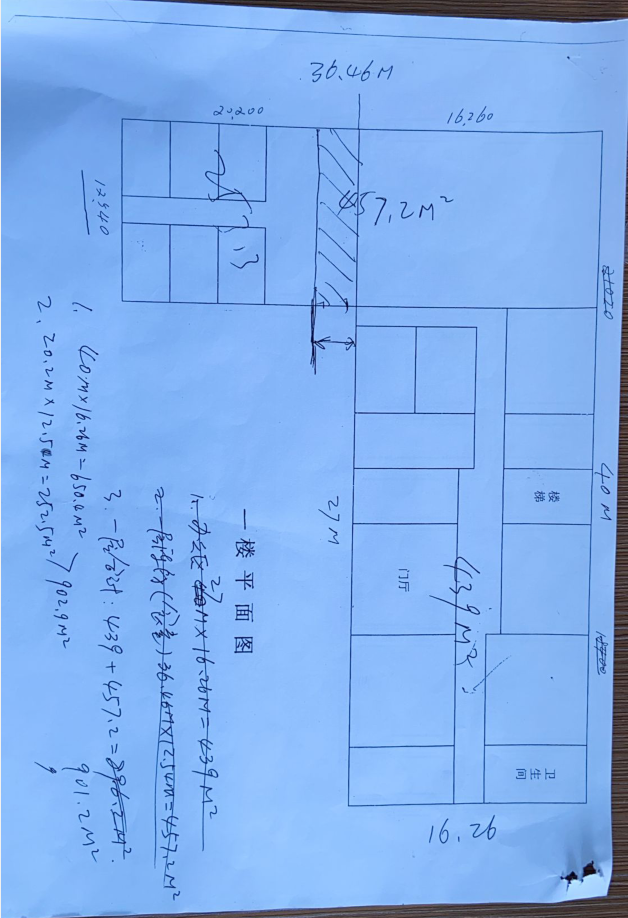 36.46M
20.200
16.260
12.540
457.2M²
21020
40M
楼梯
27M
门厅
439M²
卫生间
16.26
一楼平面图
27M×16.26M=439M²
36.46M×12.54M=457.2M²
3. 一层合计:439+457.2=896.2M²
901.2M²
1. 40M×16.26M=650.4M²
2. 20.2M×12.5M=252.5M²
902.9M²